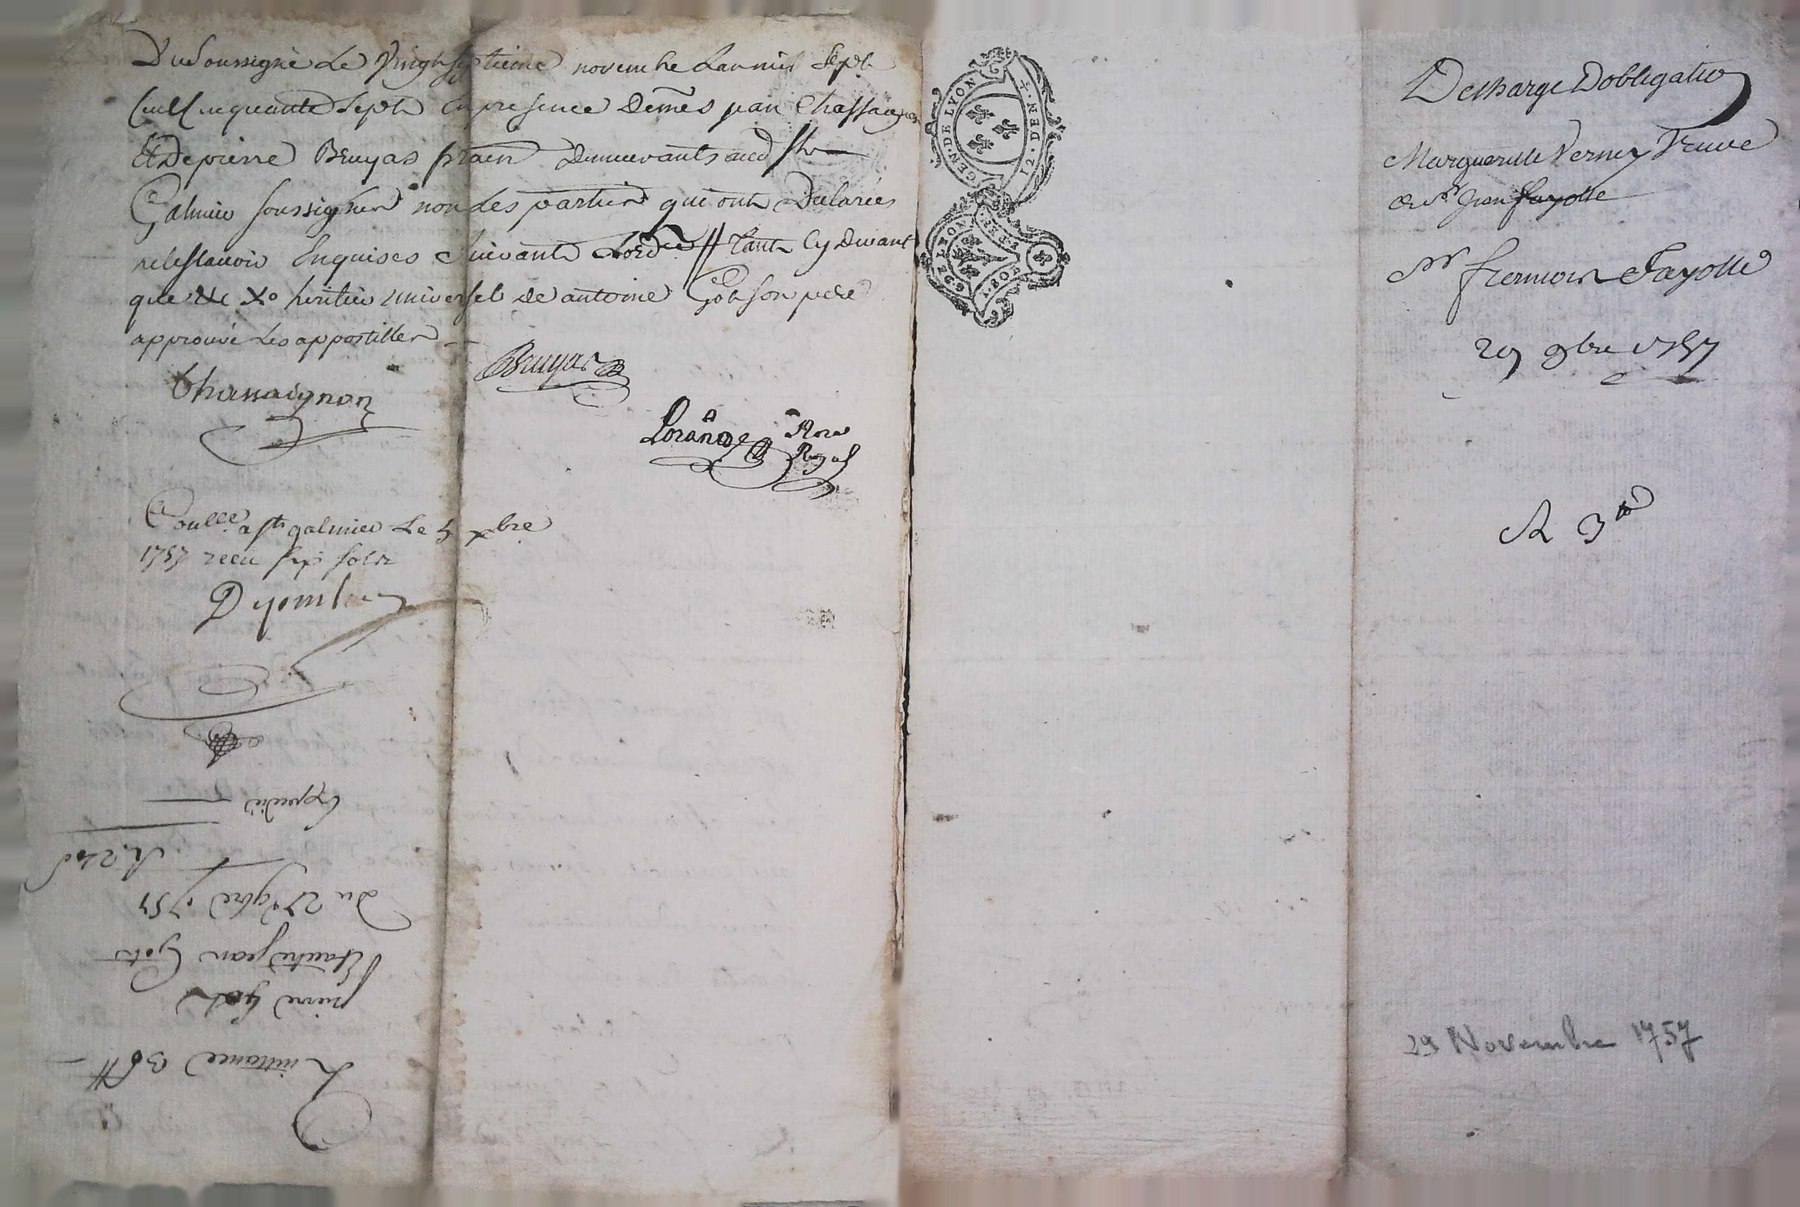 Du soussigné Le vingt septième novembre Lan mil Sept
Cent Cinquante Sept En presence de mes jean Chassaignon
Et de pierre Bruyas prâen demeurants aud St
Galmier soussignés non les parties qui ont declarées
ne le scavoir Enquises Suivant Lordce // tant Cy devant
que de Xo heritier universel de antoine Got son pere
approuvé Les appostilles
Chassaignon
Bruyas
Lorange Nore
Royal
Coulle a St galmier Le 5 xbre
1757 receu six sols
Expedié
R. 240
du 27 9bre 1757
jean Got
pierre Got
Quittance 36 ₶
GEN · DE LYON
12 · DEN
Descharge Dobligation
Marguerite Verney Veuve
de Sr Jean fayolle
Sr fremoin Fayolle
29 9bre 1757
R 3
29 Novembre 1757